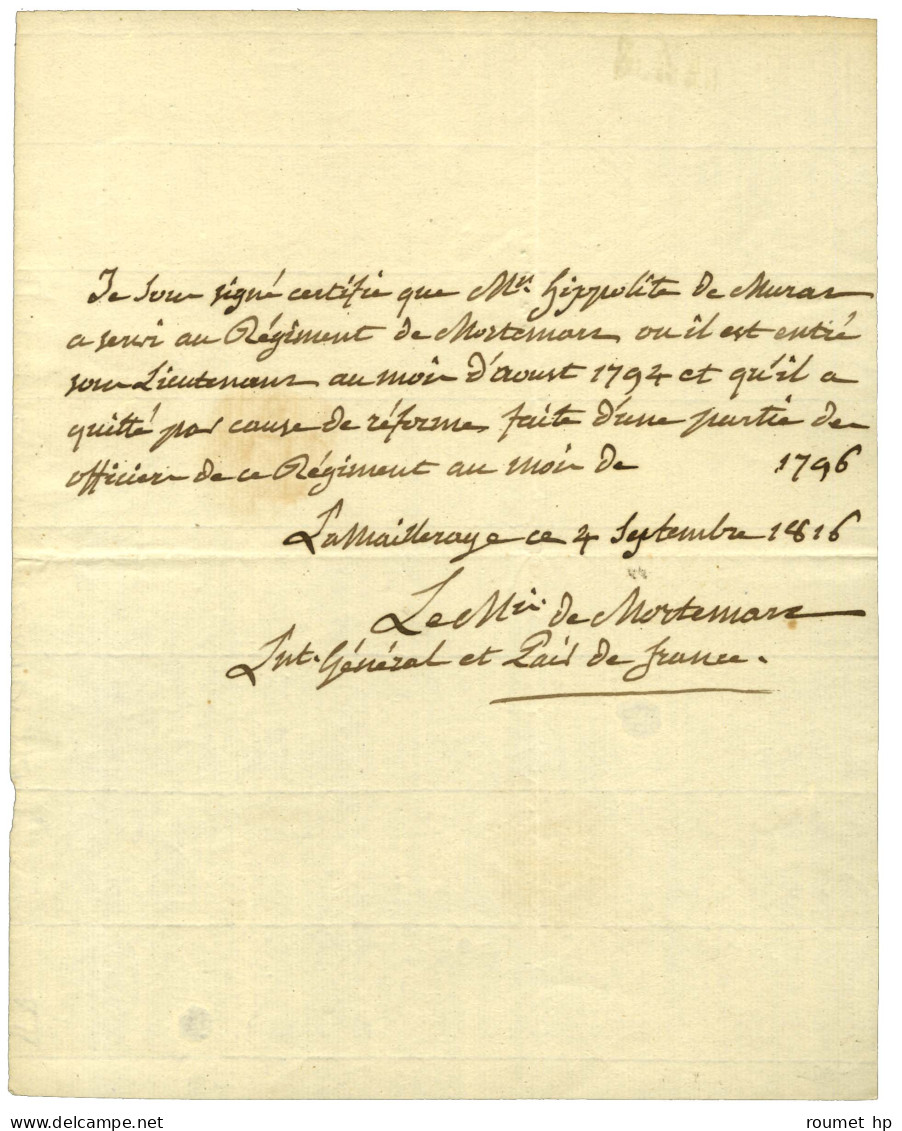 Je sous signé certifie que Mr. Hippolite de Murat
a servi au Régiment de Mortemart ou il est entré
sous Lieutenant au mois d'aoust 1794 et qu'il a
quitté par cause de réforme faite d'une partie des
officiers de ce Régiment au mois de 1796
LaMailleraye ce 4 Septembre 1816
Le Mis. de Mortemart
Lnt. Général et Pair de france.
www.delcampe.net
roumet hp